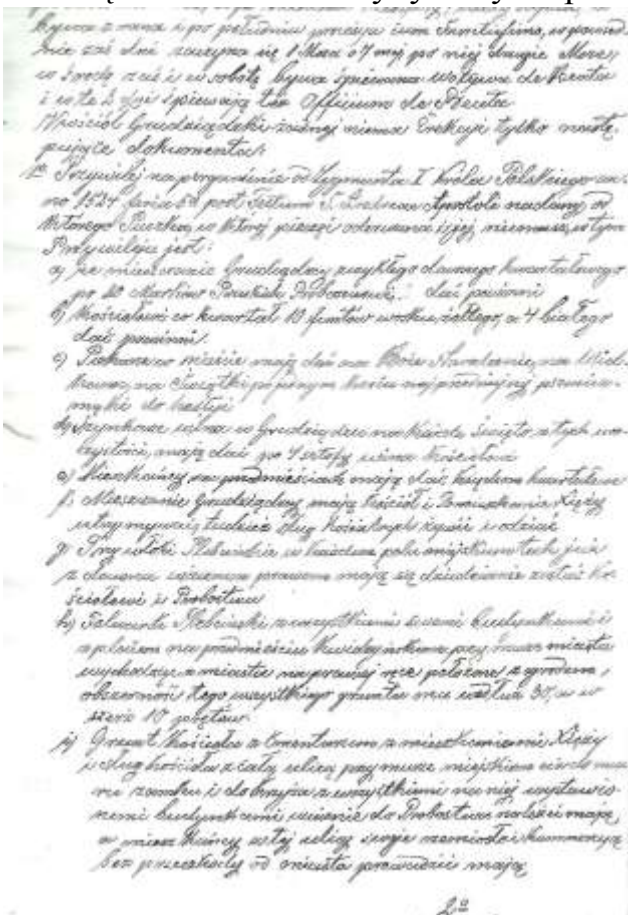 bywa z rana i po południu procesja cum Sanctissimo, w
nie zaś dni zaczyna się 1 Msza o 7 mej po niej drugie Msze,
w środę zaś i w sobotę bywa śpiewana wotywa de Beata
i w te 2 dni śpiewają też Officium de Beata
Kościół Grudziądzki żadnej niema Erekcji tylko nastę-
pujące dokumenta:
1º Przywilej na pergaminie od Zygmunta I Króla Polskiego an-
no 1524 feria post Festum S. Andreae Apostoli nadany, od
którego Puszka, w której pieczęć oderwana, w tym
Przywileju jest:
a) że mieszczanie Grudziądzcy zwykłego dawnego kwartałowego
po 10 Marków Pruskich Proboszczowi dać powinni
b) Kościołowi co kwartał 10 funtów wosku żółtego, a 4 białego
dać powinni.
c) Piekarze w mieście mają dać na Boże Narodzenie, na Wiel-
kanoc, na Świątki po jednym korcu najprzedniejszej
mąki do hostyj
d) Szynkarze wina w Grudziądzu na każde święto z tych uro-
czystości, mają dać po wina kościołowi
e) Mieszkańcy na przedmieściach mają dać
f) Mieszczanie Grudziądzcy mają Kościół i Pomieszkania Księży
utrzymywać, tudzież sług kościelnych żywić i odziać
g) Trzy włóki Plebańskie w każdym polu miejskim tak jak
z dawna prawem mają się dziedzicznie zostać Ko-
ściołowi i Probostwu
h) Folwark Plebański z wszystkiemi swemi budynkami i
z placem na przedmieściu Kwidzyńskim przy murze miasta
wychodząc z miasta na prawej ręce położone z ogrodem,
obszerność tego wszystkiego gruntu ma wzdłuż 30, a w
szerz 10 prętów
i) Grunt Kościoła z Cmentarzem z mieszkaniami Księży
i sług kościoła z całą ulicą przy murze miejskim
zamku i z wszystkimi na niej wystawio-
nemi budynkami wiecznie do Probostwa należeć mają,
a mieszkańcy w tej ulicy swoje rzemiosła i kommercye
bez przeszkody od miasta prowadzić mają
2º